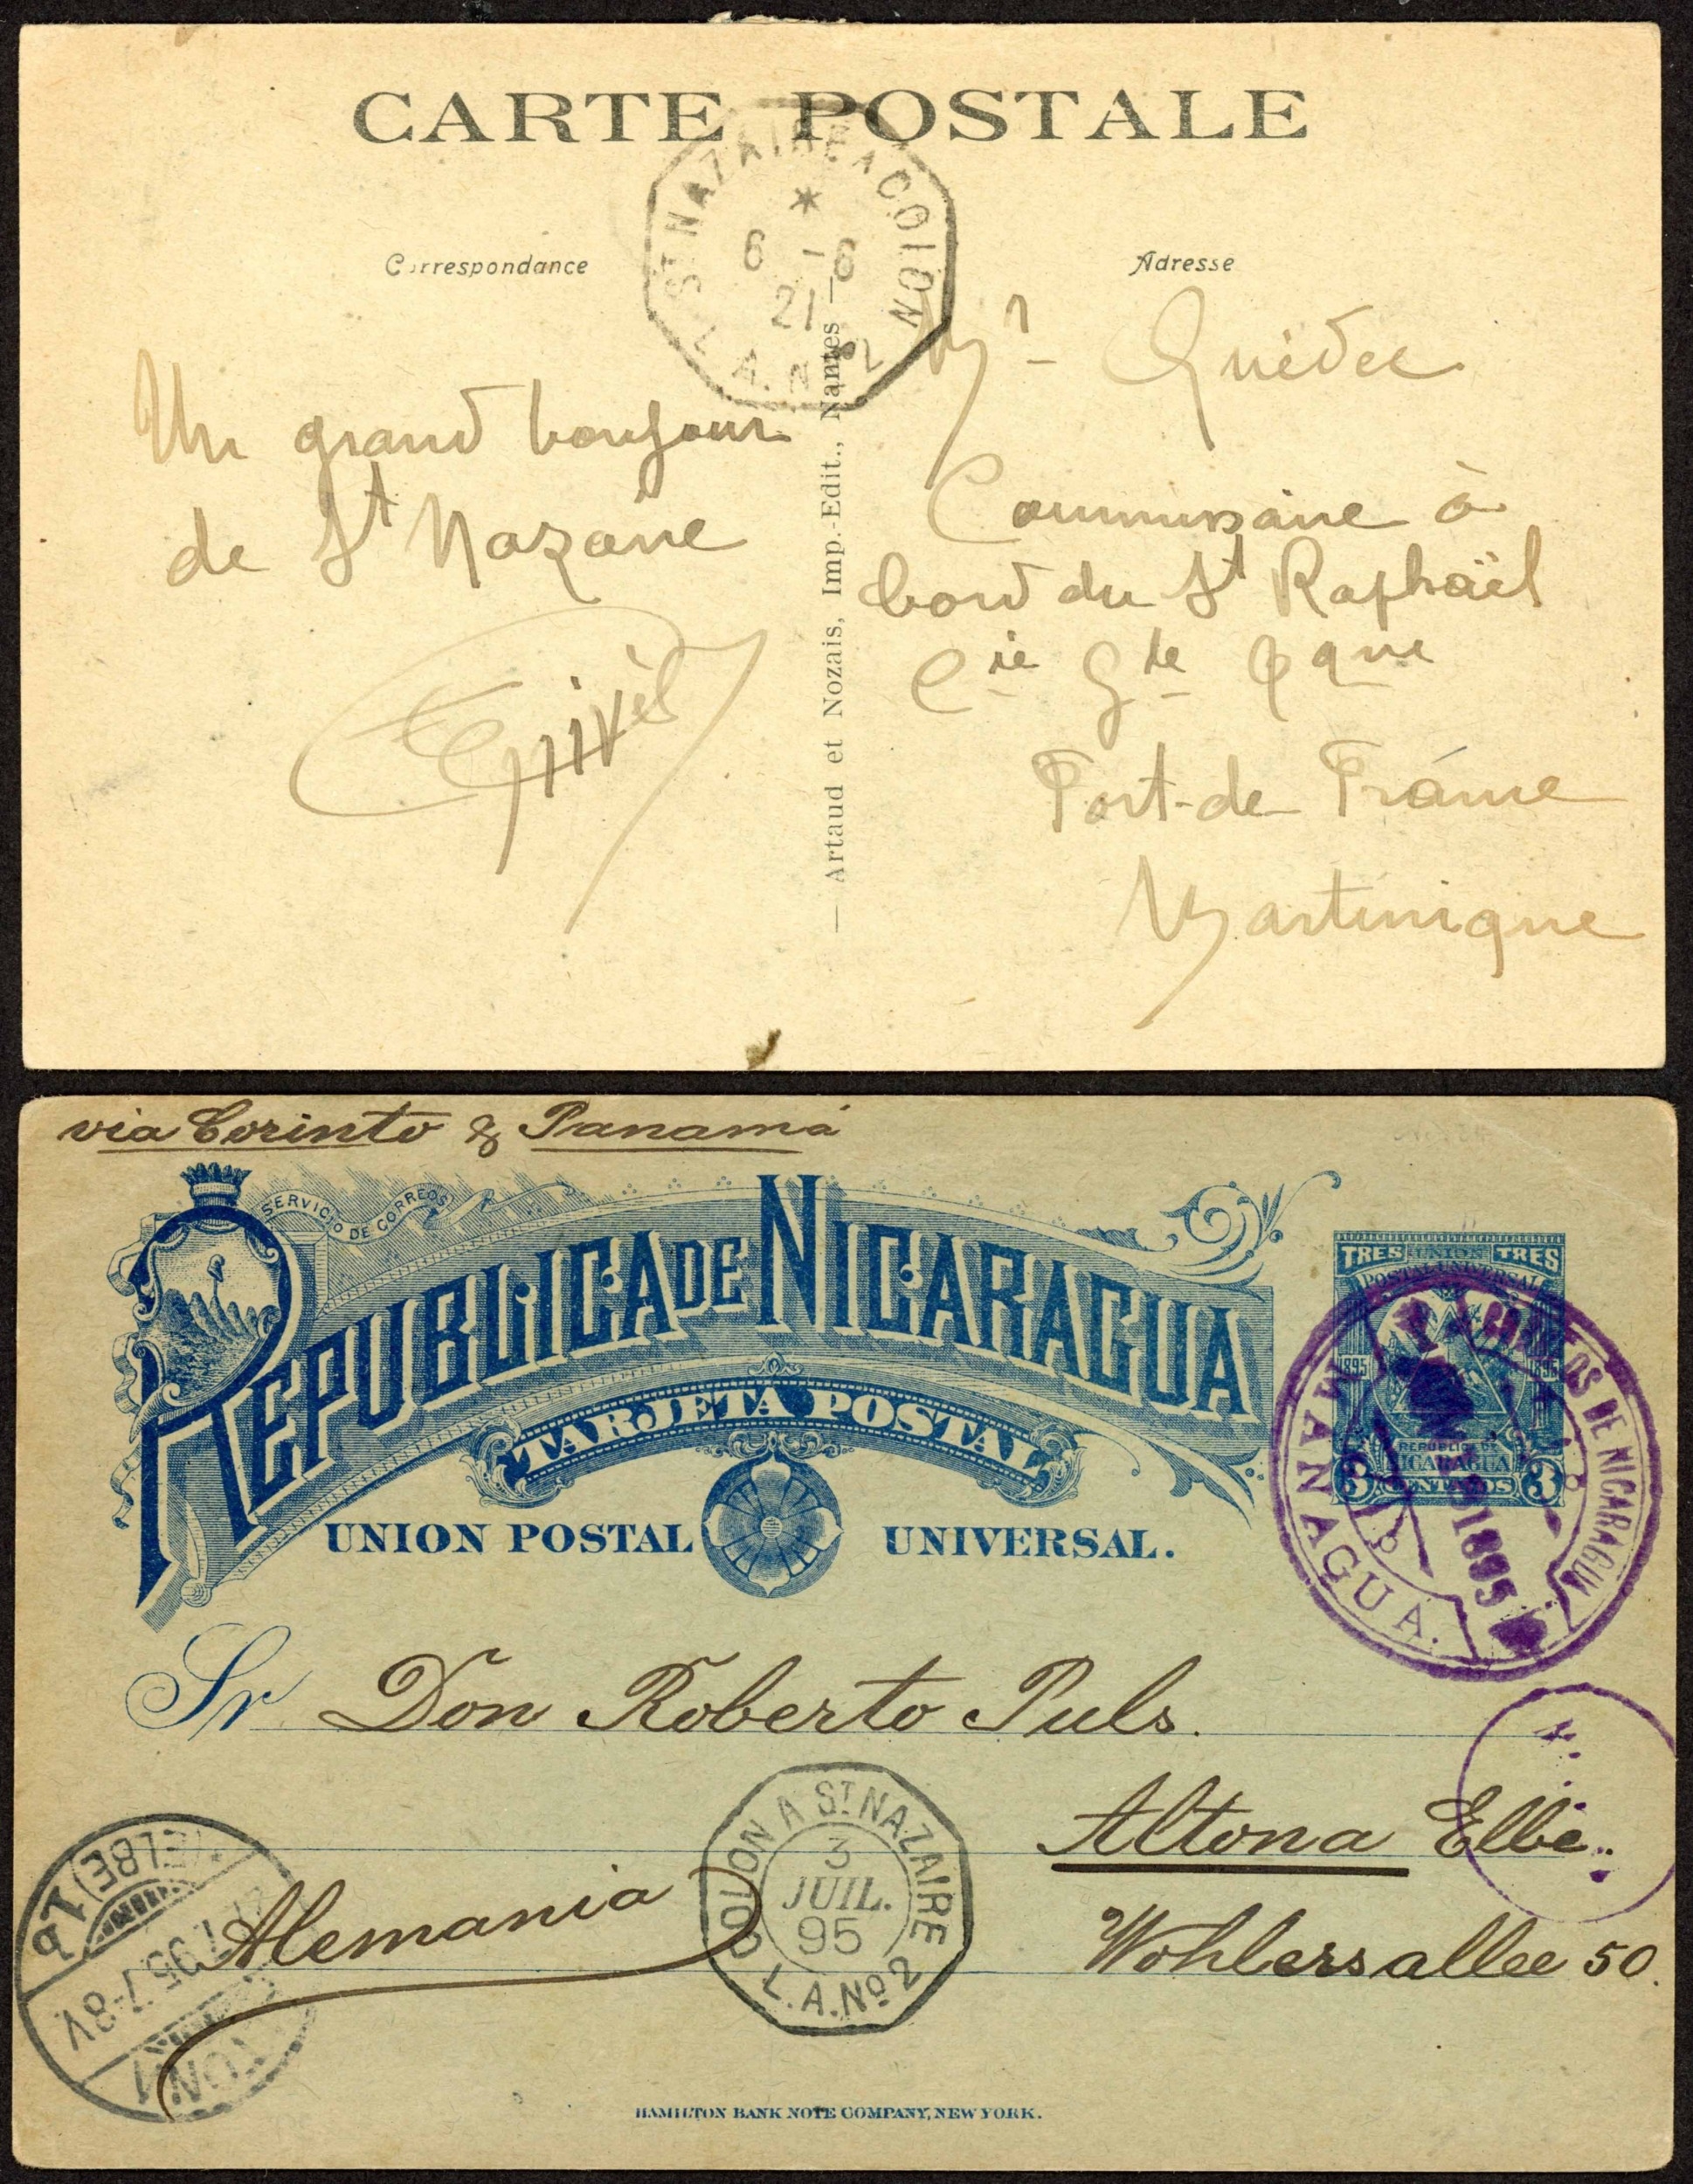 CARTE POSTALE
ST NAZAIRE A COLON
6 - 6
21
L.A.N
Correspondance
Adresse
Un grand bonjour
de St Nazaire
Mr Quédec
Commissaire à
bord du St Raphaël
Cie Gle Tque
Fort-de-France
Martinique
— Artaud et Nozais, Imp.-Edit., Nantes —
via Corinto & Panamá
SERVICIO DE CORREOS
REPUBLICA DE NICARAGUA
TARJETA POSTAL
UNION POSTAL UNIVERSAL.
TRES UNION TRES
POSTAL UNIVERSAL
1895 1895
REPUBLICA DE
NICARAGUA
3 CENTAVOS 3
CORREOS DE NICARAGUA
MANAGUA.
1895
Sr Don Roberto Puls.
Altona Elbe.
Wohlersallee 50.
Alemania
COLON A ST NAZAIRE
3
JUIL.
95
L.A.Nº 2
(ELBE)
7 95 7-8V
HAMILTON BANK NOTE COMPANY, NEW YORK.